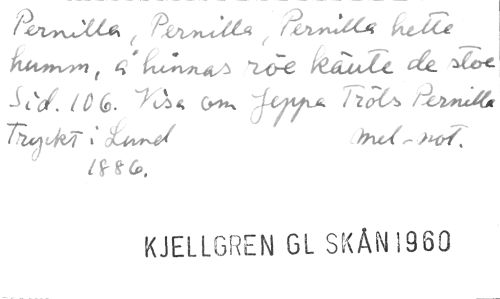 Pernilla, Pernilla, Pernilla hette
humm, å hinnas röe käute de stoe
Sid. 106. Visa om Jeppa Tröls Pernilla
Tryckt i Lund mel-not.
1886.
KJELLGREN GL SKÅN1960